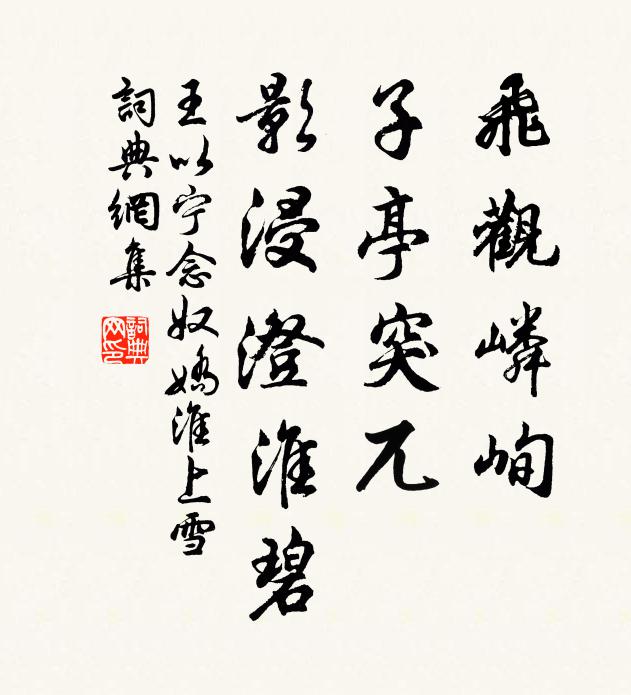 飛觀嶙峋
子亭突兀
影浸澄淮碧
王以宁念奴嬌淮上雪
詞典網集
詞典网印